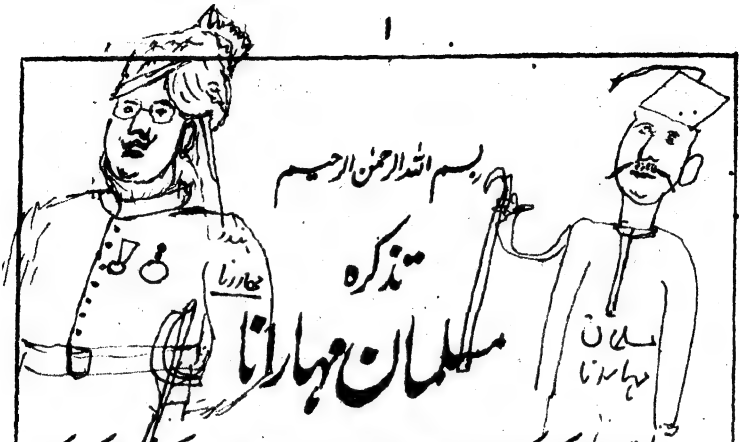 ۱
بسم الله الرحمٰن الرحیم
تذکرہ
مسلمان مہارانا
ہندو
مہارانا
مسلمان
مہارانا